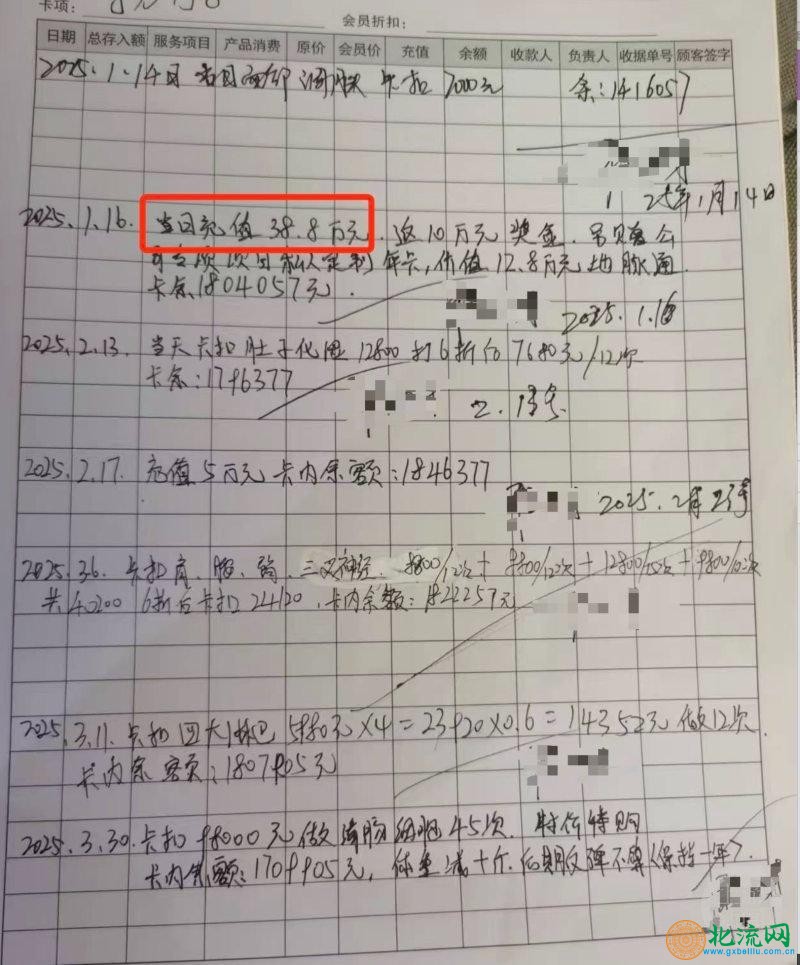 卡项：
会员折扣：
日期 总存入额 服务项目 产品消费 原价 会员价 充值 余额 收款人 负责人 收据单号 顾客签字
2025.1.14日 卡扣 7000元 余：1416057
25年1月14日
2025.1.16. 当日充值 38.8万元，返10万元奖金.
专项项目私人定制年卡，价值12.8万元地脉通
卡余1804057元.
2025.1.16
2025.2.13. 当天卡扣肚子化湿 12800 打6折后 7680元/12次
卡余：1796377
2.13号
2025.2.17. 充值5万元 卡内余额：1846377
2025.2月
2025.3.6. 卡扣肩、腸、三叉神经. 9800/12次 + 12800/15次 + 9800/12次
共40200 6折后卡扣24120，卡内余额：1822257元
2025.3.11. 卡扣四大淋巴 5980元×4=23920×0.6=14352元 做12次.
卡内余额：1807905元
2025.3.30. 卡扣98000元做 45次. 特价特购
卡内余额：1709905元，体重减十斤. 后期反弹不算（保持一年）.
北流网
www.gxbeiliu.com.cn